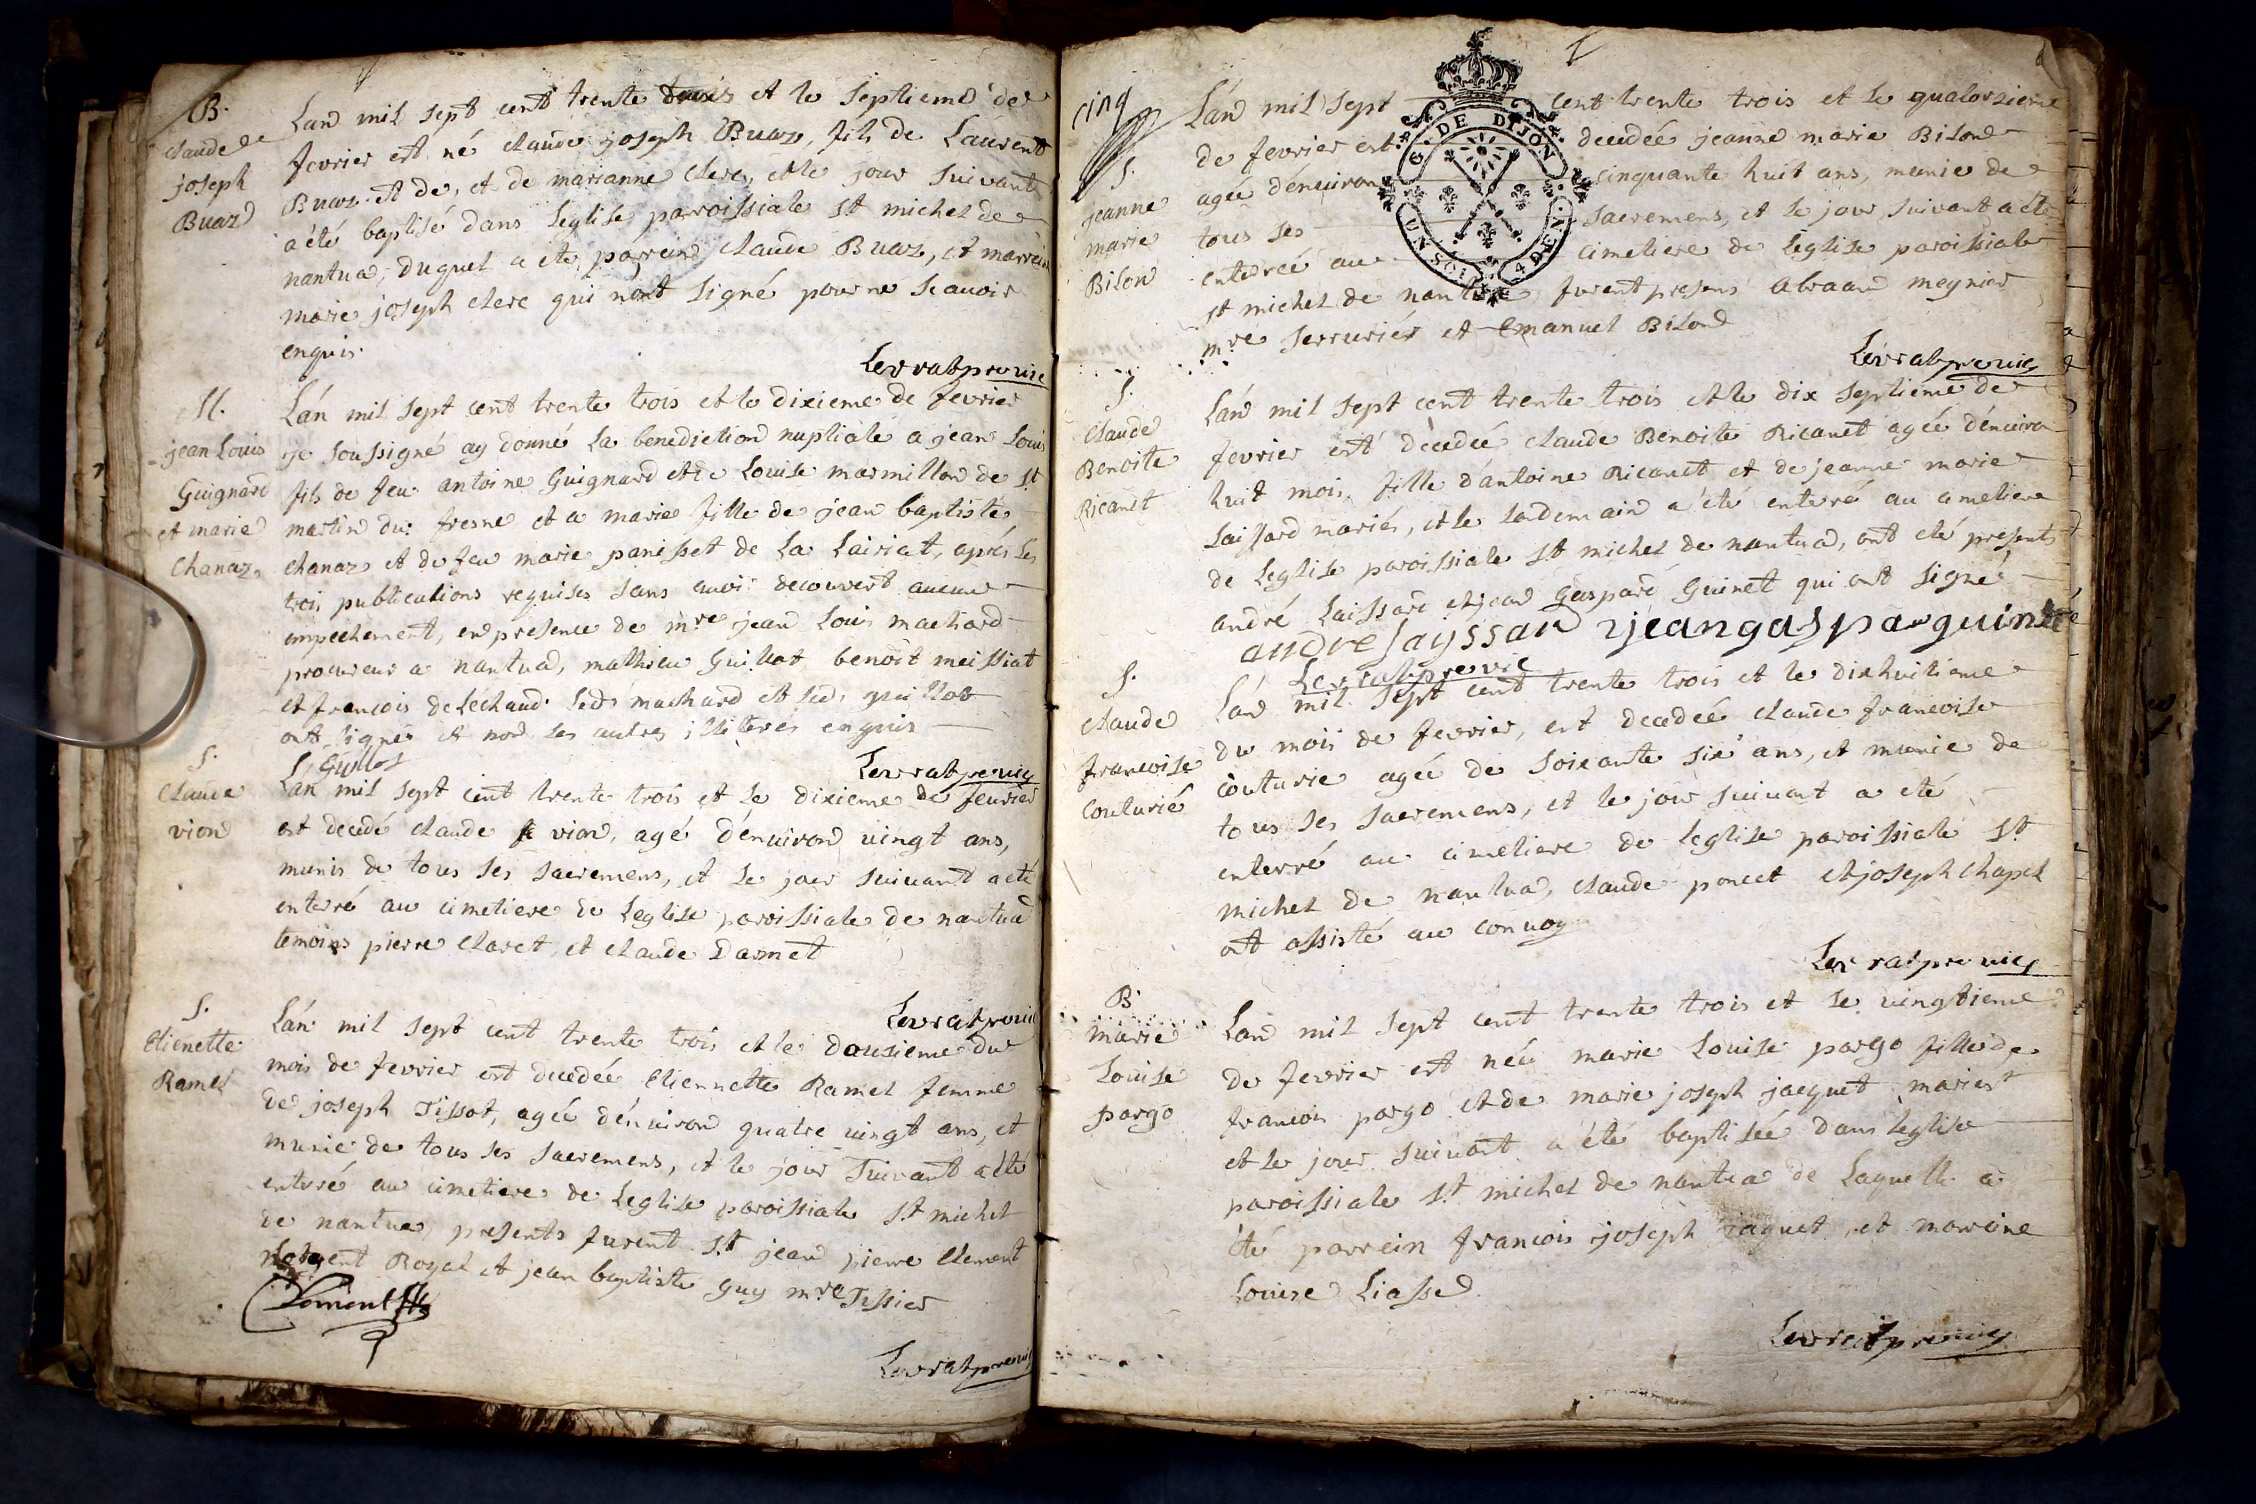 B.
claude
joseph
Buaz
Lan mil sept cent trente trois et le septieme de
fevrier est né claude joseph Buaz, fils de Laurent
Buaz et de, et de marianne clerc, et le jour suivant
a été baptisé dans leglise paroissiale st michel de
nantua, duquel a ete parrein claude Buaz, et marreine
marie joseph clerc qui nont signé pour ne scauoir
enquis
Levrat pro vic
M.
jean Louis
Guignard
et marie
Chanaz
Lán mil sept cent trente trois et le dixieme de fevrier
je soussigné ay donné la benediction nuptiale a jean Louis
fils de feu antoine Guignard et de Louise marmillon de st
martin du fresne et a marie fille de jean baptiste
chanaz et de feu marie panisset de la Lairiat, aprés les
trois publications requises sans auoir decouvert aucun
empechement, en presence de mre jean Louis machard
procureur a nantua, mathieu Guillot benoit meissiat
et francois de Léchaud. leds machard et leds guillot
ont signés et non les autres illiterés enquis
Guillot
Levrat pro vic
S.
Claude
vion
Lán mil sept cent trente trois et le dixieme de feurier
est decedé claude vion, agé dénuiron uingt ans,
munis de tous ses sacremens, et le jour suiuant a eté
enterré au cimetiere de Leglise paroissiale de nantua
temoins pierre Claret, et claude Damet
Levrat pro vic
S.
Etienette
Ramel
Lán mil sept cent trente trois et le dousieme du
mois de fevrier est decedée Etiennette Ramel femme
de joseph Tissot, agée dénuiron quatre uingt ans, et
munie de tous ses sacremens, et le jour suivant a été
enterré au cimetiere de Leglise paroissiale st michel
de nantua, presents furent sr jean pierre Clement
Royal et jean baptiste Guy mre Tissier
Levrat pro vic
cinq
S.
jeanne
marie
Bilon
G. DE DIJON
UN SOL 4 DEN.
Lán mil sept cent trente trois et le quatorzieme
de fevrier est decedée jeanne marie Bilon
agée dénuiron cinquante huit ans, munie de
tous ses sacremens, et le jour suivant a été
enterreé au cimetiere de Leglise paroissiale
st michel de nantua, furent presens abraam meynier
mre serrurier et Emanuel Bilon
Levrat pro vic
S.
Claude
Benoite
Ricanet
Lán mil sept cent trente trois et le dix septieme de
fevrier est décedeé claude Benoite Ricanet agée dénuiron
huit mois fille dántoine Ricanet et de jeanne marie
Laissard mariés, et le landemain a été enterré au cimetiere
de Leglise paroissiale st michel de nantua, ont eté presents
andré Laissard et jean Gaspard Guinet qui ont signé
andre layssard jean gaspar guinet
Levrat pro vic
S.
Claude
francoise
couturié
Lán mil sept cent trente trois et le dixhuitieme
du mois de fevrier, est decedée claude francoise
couturie agée de soixante six ans, et munie de
tous ses sacremens, et le jour suiuant a eté
enterré au cimetiere de leglise paroissiale st
michel de nantua, claude poncet et joseph chapel
ont assisté au convoy
Levrat pro vic
B.
marie
Louise
pargo
Lan mil sept cent trente trois et le uingtieme
de fevrier est neé marie Louise pargo fille de
francois pargo et de marie joseph jacquet mariés
et le jour suiuant a été baptisée dans leglise
paroissiale st michel de nantua de Laquelle a
été parrein francois joseph jaquet, et marreine
Louise Liasse
Levrat pro vic